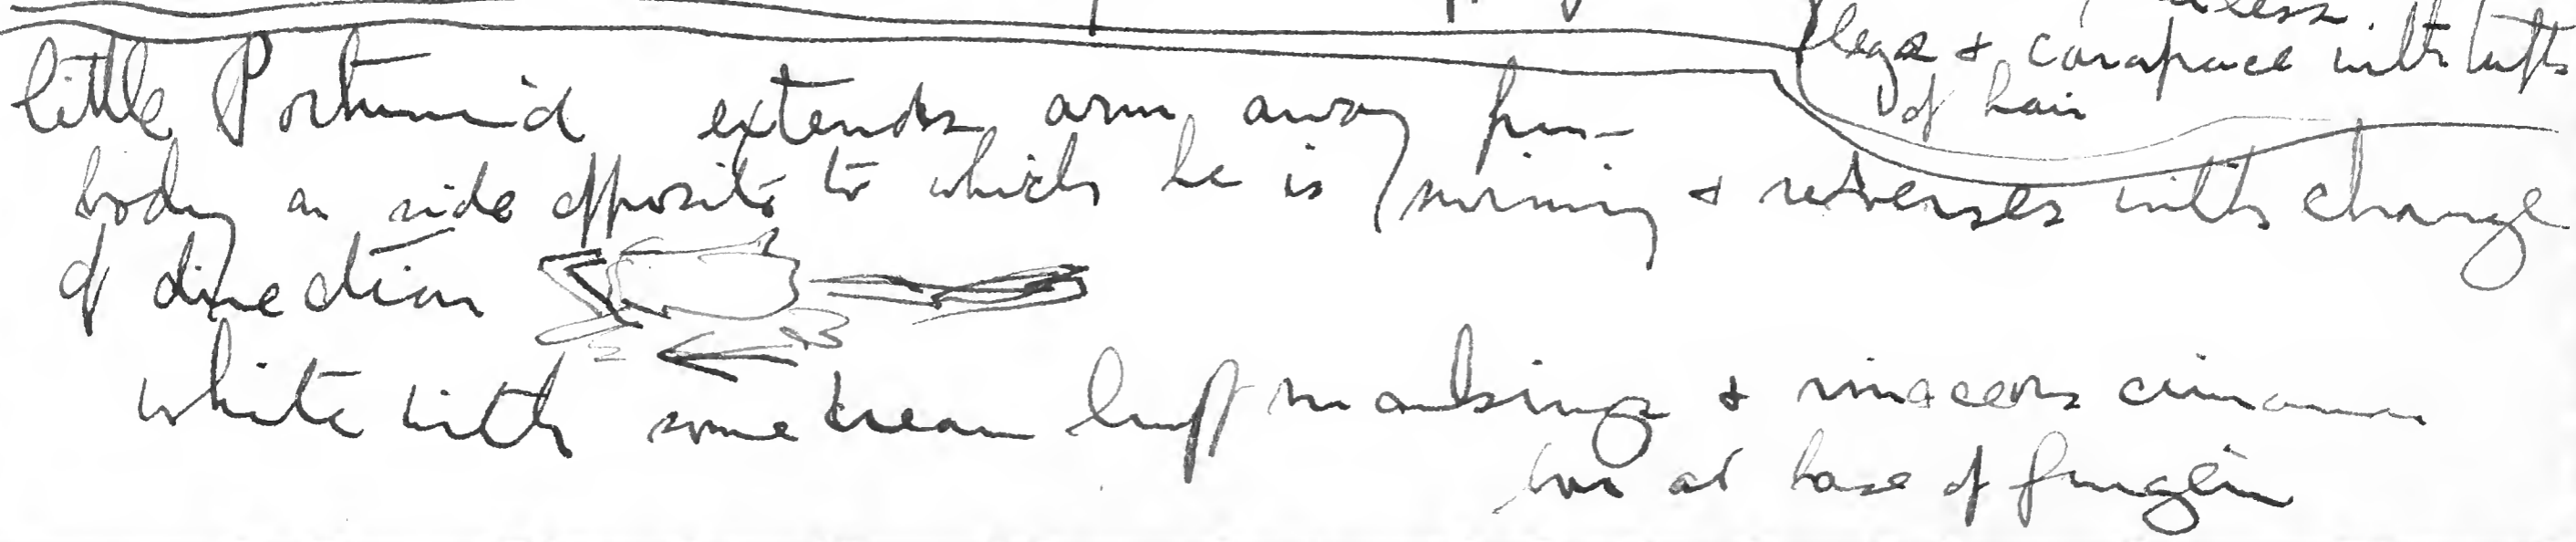 legs & carapace with tufts
of hair
little Portunid extends arm away from
body on side opposite to which he is swimming & reverses with change
of direction
white with some cream buff markings & vinaceous cinnamon
bar at base of finger